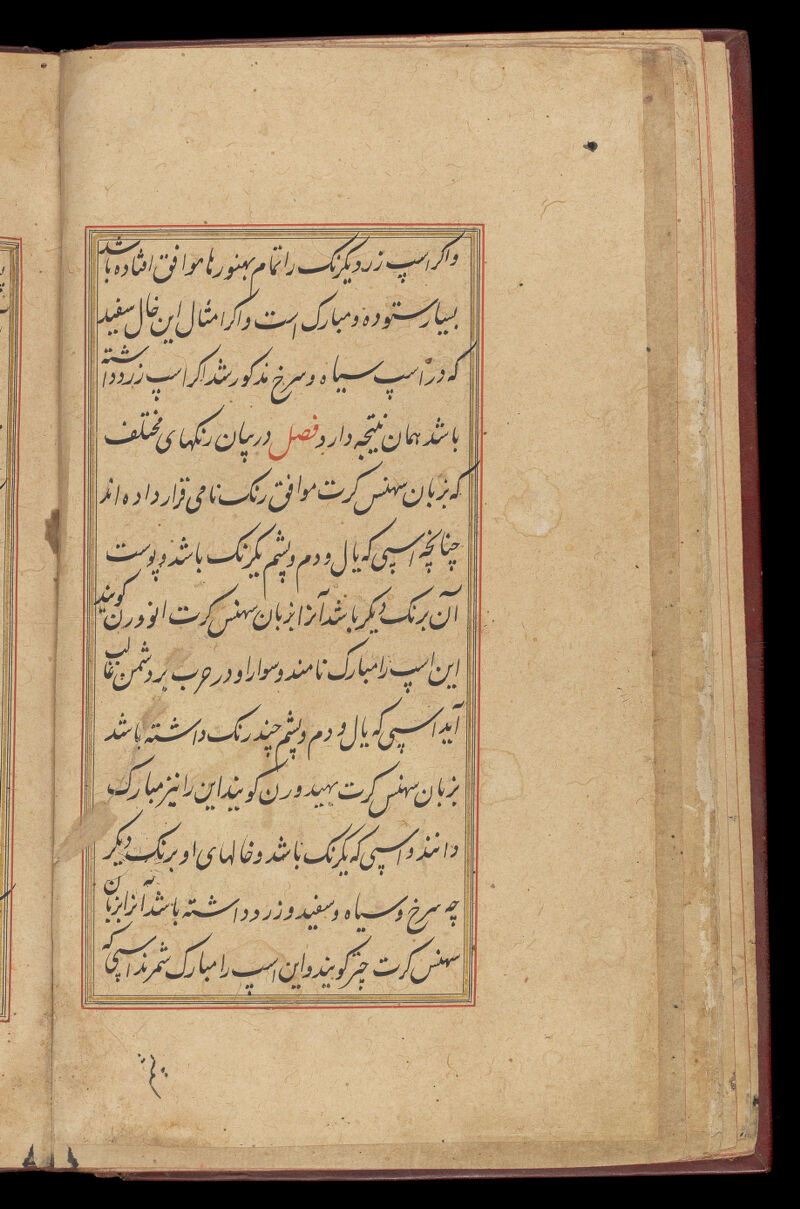 واکر اسپ زرد یکرنک را تمام بهنورها موافق افتاده باشد
بسیار ستوده و مبارک است و اکر امثال این خال سفید
که در اسپ سیاه و سرخ مذکور شد اکر اسپ زرد داشته
باشد همان نتیجه دارد فصل در بیان رنکهای مختلف
که بزبان سهنس کرت موافق رنک نامی قرار داده اند
چنانچه اسپی که یال و دم و پشم یکرنک باشد و پوست
آن برنک دیکر باشد آنرا بزبان سهنس کرت انوورن کویند
این اسپ را مبارک نامند و سوار او در حرب بر دشمن غالب
آید اسپی که یال و دم و پشم چند رنک داشته باشد
بزبان سهنس کرت بهیدورن کویند این را نیز مبارک
دانند و اسپی که یکرنک باشد و خالهای او برنک دیکر
چه سرخ و سیاه و سفید و زرد داشته باشد آنرا بزبان
سهنس کرت چتر کویند و این اسپ را مبارک شمرند اسپی که